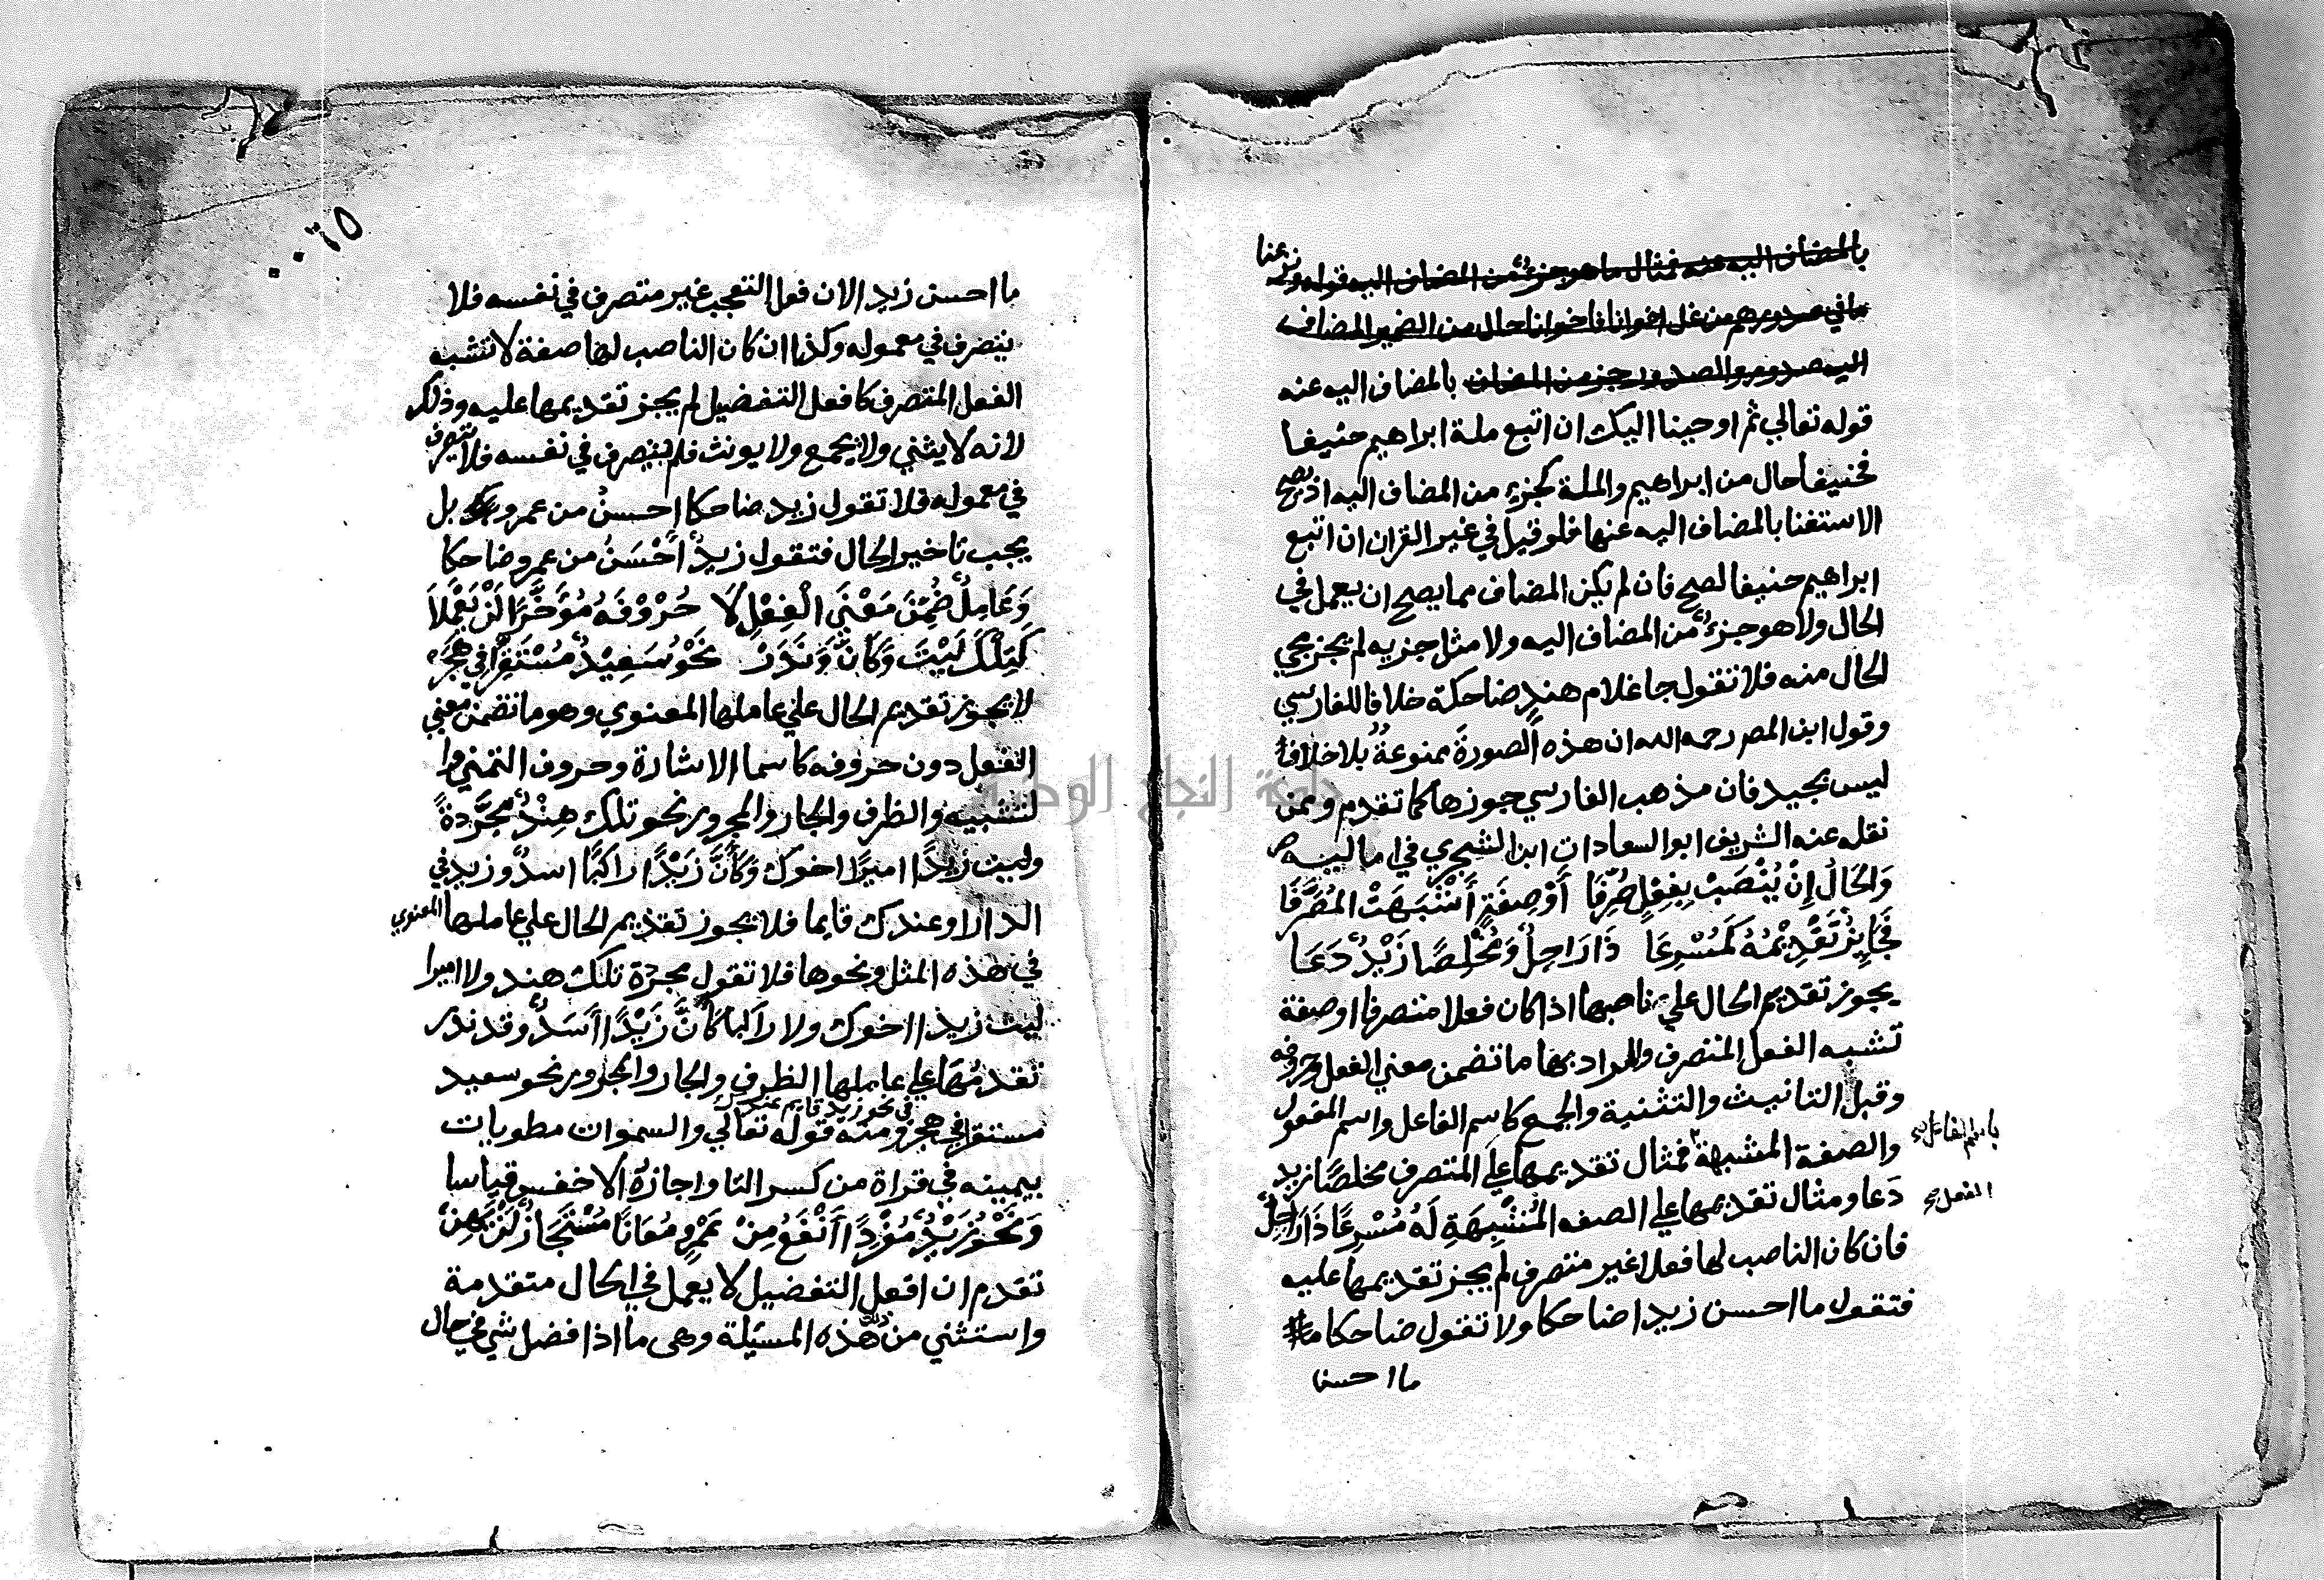 بالمضاف اليه عنه فمثال ما هو جزء من المضاف اليه قوله ونزعنا
ما في صدورهم من غل اخوانا فاخوانا حال من الضمير المضاف
اليه صدور والصدور جزء من المضاف بالمضاف اليه عنه
قوله تعالي ثم اوحينا اليك ان اتبع ملة ابراهيم حنيفا
فحنيفا حال من ابراهيم والملة كجزء من المضاف اليه اذ يصح
الاستغنا بالمضاف اليه عنها فلو قيل في غير القران ان اتبع
ابراهيم حنيفا لصح فان لم يكن المضاف مما يصح ان يعمل في
الحال ولا هو جزءٌ من المضاف اليه ولا مثل جزيه لم يجز مجي
الحال منه فلا تقول جا غلام هند ضاحكة خلافا للفارسي
وقول ابن المصر رحمه الله ان هذه الصورة ممنوعةٌ بلا خلاف
ليس بجيد فان مذهب الفارسي جوزها كما تقدم وممن
نقله عنه الشريف ابو السعادات ابن الشجري في اماليه ص
وَالحَالُ إِنْ يُنْصَبْ بِفِعْلٍ صُرِّفَا أَوْ صِفَةٍ أَشْبَهَتْ المُصَرَّفَا
فَجَايِزٌ تَقْدِيْمُهُ كَمُسْرِعَا ذَا رَاحِلٌ وَمُخْلِصًا زَيْدٌ دَعَا
يجوز تقديم الحال علي ناصبها اذا كان فعلا متصرفا او صفة
تشبه الفعل المتصرف والمراد بها ما تضمن معني الفعل وحروفه
وقبل التانيث والتثنية والجمع كاسم الفاعل واسم المفعول
والصفة المشبهة فمثال تقديمها علي المتصرف مخلصًا زيد
دَعا ومثال تقديمها علي الصفه المُشْبِهَةِ لَهُ مُسْرِعًا ذَا رَاحِلٌ
فان كان الناصب لها فعلا غير متصرف لم يجز تقديمها عليه
فتقول ما احسن زيدا ضاحكا ولا تقول ضاحكا ما
ما احسن
المفعل
٠٠٦٥
ما احسن زيد الان فعل التعجب غير متصرف في نفسه فلا
يتصرف في معموله وكذا ان كان الناصب لها صفة لا تشبه
الفعل المتصرف كافعل التفضيل لم يجز تقديمها عليه وذلك
لانه لا يثني ولا يجمع ولا يونث فلم يتصرف في نفسه فلا يتصرف
في معموله فلا تقول زيد ضاحكا احسنُ من عمرو بل
يجب تاخير الحال فتقول زيدٌ أَحْسَنُ من عمرو ضاحكا
وَعَامِلٌ ضُمِّنَ مَعْنَي الْفِعْلِ لَا حُرُوْفَهُ مُؤَخَّرًا لَنْ يَعْمَلَا
كَتِلْكَ لَيْتَ وَكَأَنَّ وَنَدَرْ نَحْوُ سَعِيْدٌ مُسْتَقِرًّا فِي هَجَرْ
لا يجوز تقديم الحال علي عاملها المعنوي وهو ما تضمن معني
الفعل دون حروفه كاسما الاشارة وحروف التمني وا
لتشبيه والظرف والجار والمجرور نحو تلك هِنْدٌ مجَّردةً
وليت زيدًا اميرًا اخوك وَكَأَنَّ زَيْدًا راكبًا اسدٌ وزيد في
الدار او عندك قايما فلا يجوز تقديم الحال علي عاملها المعنوي
في هذه المثل ونحوها فلا تقول مجردة تلك هند ولا اميرا
ليت زيدا اخوك ولا راكبا كأنَّ زَيْدًا أَسَدٌ وقد ندر
تقدمُهَا علي عاملها الظرف والجار والمجرور نحو سعيد
في نحو زيد قايم عندك
مستقرا في هجر ومنه قوله تعالي والسموات مطويات
بيمينه في قراة من كسر التا واجازهُ الاخفش قياسا
وَنَحْوُ زَيْدٌ مُفْرِدًا أَنْفَعُ مِنْ عَمْرٍو مُعَانًا مُسْتَجَازٌ لَنْ يَهِنْ
تقدم ان افعل التفضيل لا يعمل في الحال متقدمة
واستثني من ذلك هذه المسئلة وهي ما اذا فضل شي في حال
جامعة النجاح الوطنية